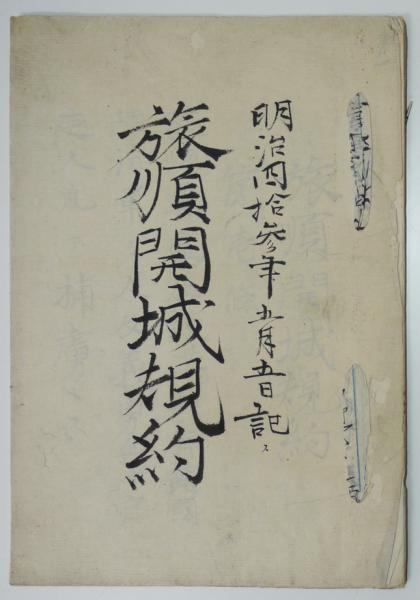 明治四拾参年五月五日記ス
旅順開城規約